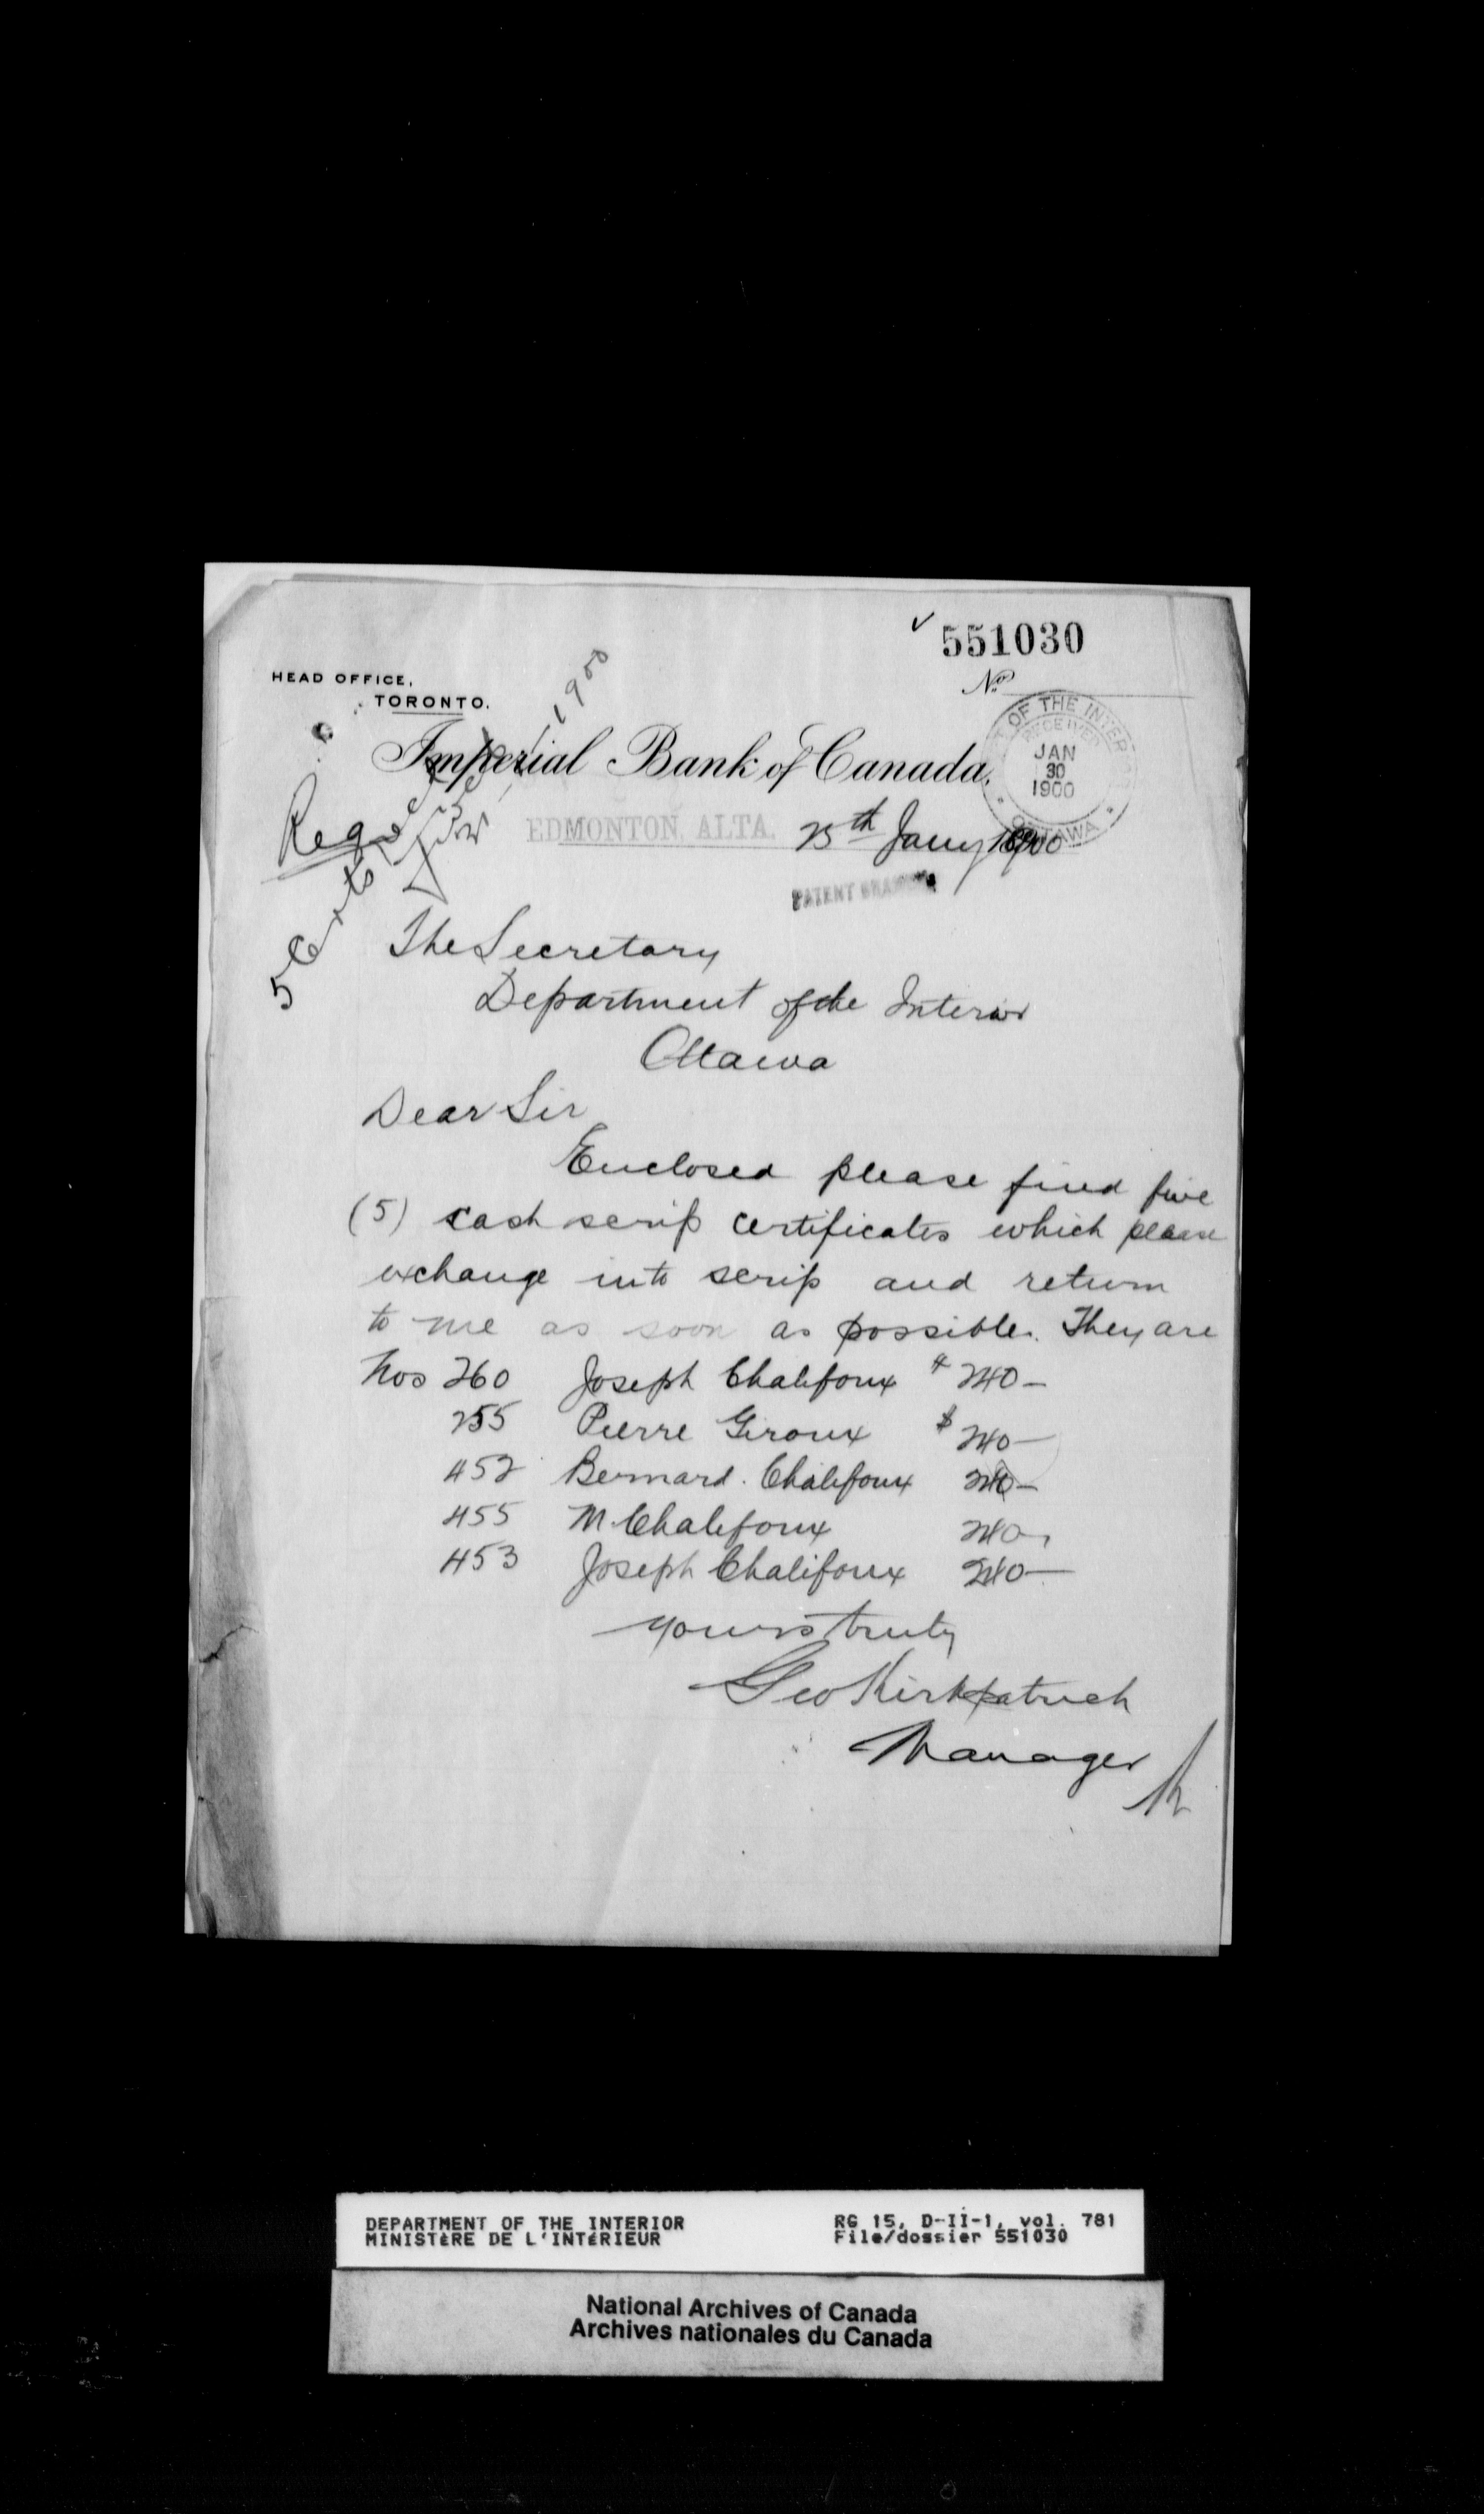 551030
No
HEAD OFFICE,
TORONTO.
Imperial Bank of Canada.
OF THE INTERIOR
RECEIVED
JAN
30
1900
OTTAWA
EDMONTON, ALTA. 25th Jany 1900
PATENT BRANCH
Reg
1900
The Secretary
Department of the Interior
Ottawa
Dear Sir
Enclosed please find five
(5) cash scrip certificates which please
exchange into scrip and return
to me as soon as possible. They are
Nos 260 Joseph Chalifoux $ 240 —
255 Pierre Giroux $ 240 —
452 Bernard Chalifoux 240 —
455 M. Chalifoux 240 —
453 Joseph Chalifoux 240 —
Yours truly
Geo Kirkpatrick
Manager
DEPARTMENT OF THE INTERIOR
MINISTÈRE DE L'INTÉRIEUR
RG 15, D-II-1, vol. 781
File/dossier 551030
National Archives of Canada
Archives nationales du Canada